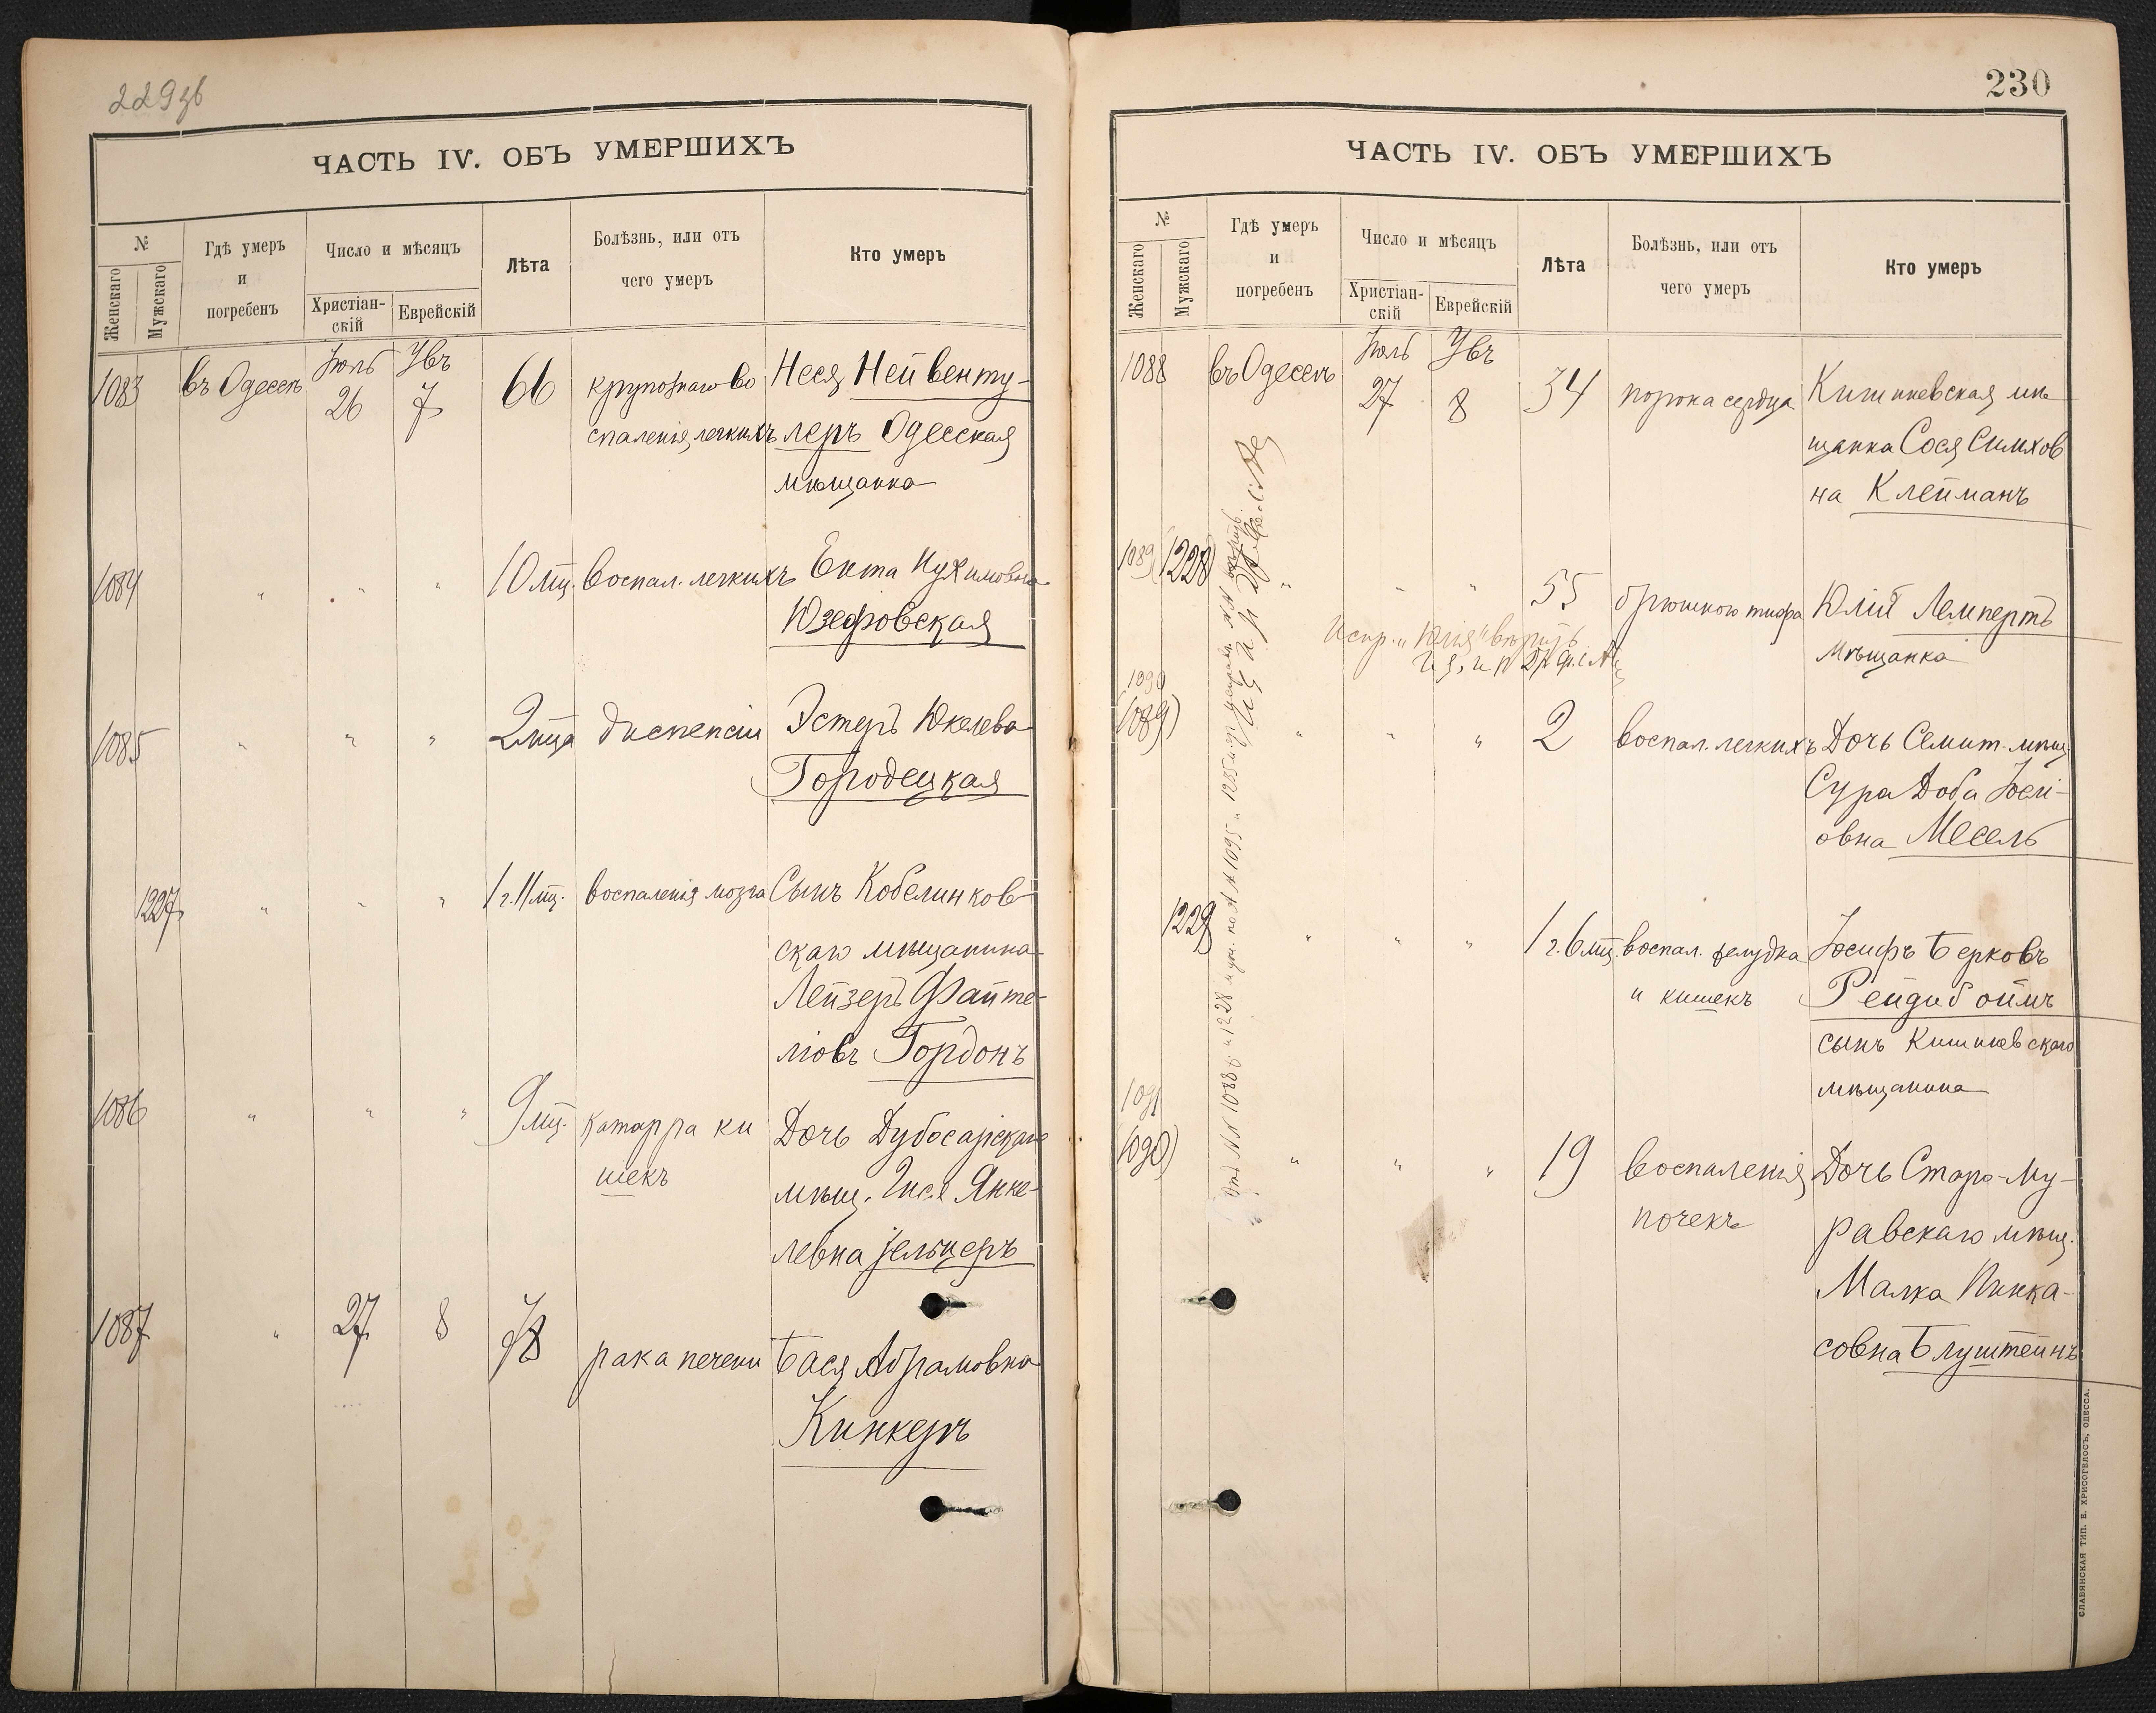 229 об
ЧАСТЬ IV. ОБЪ УМЕРШИХЪ
№
Женскаго
Мужскаго
Гдѣ умеръ
и
погребенъ
Число и мѣсяцъ
Христіан-
скій
Еврейскій
Лѣта
Болѣзнь, или отъ
чего умеръ
Кто умеръ
1083 въ Одессѣ Іюль 26 Увъ 7 66 крупознаго во Неся Нейвенту-
спаленія легкихъ леръ Одесская
мѣщанка
1084 " " " 10 мц. воспал. легкихъ Ента Нухимовна
Юзефовская
1085 " " " 2 мца диспепсіи Эстеръ Юкелева
Городецкая
1227 " " " 1 г. 11 мц. воспаленія мозга Сынъ Кобелинков
скаго мѣщанина
Лейзеръ Файте-
ліовъ Гордонъ
1086 " " " 9 мц. катарра ки Дочь Дубосарскаго
шекъ мѣщ. Янке-
левна Зельцеръ
1087 " 27 8 78 рака печени Бася Абрамовна
Кинкеръ
230
ЧАСТЬ IV. ОБЪ УМЕРШИХЪ
№
Женскаго
Мужскаго
Гдѣ умеръ
и
погребенъ
Число и мѣсяцъ
Христіан-
скій
Еврейскій
Лѣта
Болѣзнь, или отъ
чего умеръ
Кто умеръ
1088 въ Одессѣ Іюль 27 Увъ 8 34 порока сердца Кишиневская мѣ
щанка Сося Симхов
на Клейманъ
1089 (1228) " " " 55 брюшного тифа Юлій Лемпертъ
мѣщанка
Испр. "Юлія" вѣрить
1090
(1089) " " " 2 воспал. легкихъ Дочь мѣщ.
Сура Доба Іосі-
овна Месель
1229 " " " 1 г. 6 мц. воспал. желудка Іосифъ Берковъ
и кишекъ Рейдибоймъ
сынъ Кишиневскаго
мѣщанина
1091
(1090) " " " 19 воспаленія Дочь Старо-Му-
почекъ равскаго мѣщ.
Малка Пинка-
совна Блуштейнъ
СЛАВЯНСКАЯ ТИП. Е. ХРИСОГЕЛОСЪ, ОДЕССА.